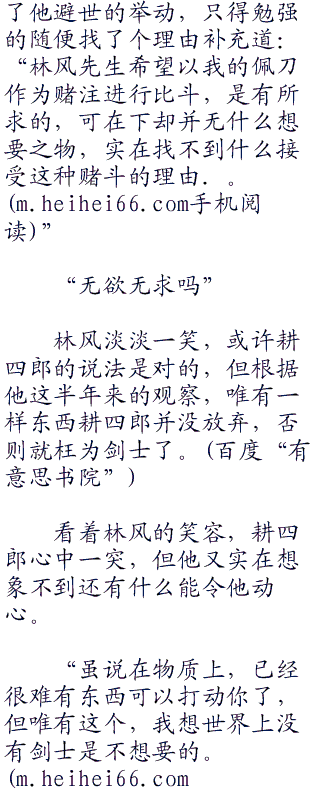 了他避世的举动，只得勉强
的随便找了个理由补充道：
“林风先生希望以我的佩刀
作为赌注进行比斗，是有所
求的，可在下却并无什么想
要之物，实在找不到什么接
受这种赌斗的理由．。
(m.heihei66.com手机阅
读)”
“无欲无求吗”
林风淡淡一笑，或许耕
四郎的说法是对的，但根据
他这半年来的观察，唯有一
样东西耕四郎并没放弃，否
则就枉为剑士了。(百度“有
意思书院”)
看着林风的笑容，耕四
郎心中一突，但他又实在想
象不到还有什么能令他动
心。
“虽说在物质上，已经
很难有东西可以打动你了，
但唯有这个，我想世界上没
有剑士是不想要的。
(m.heihei66.com